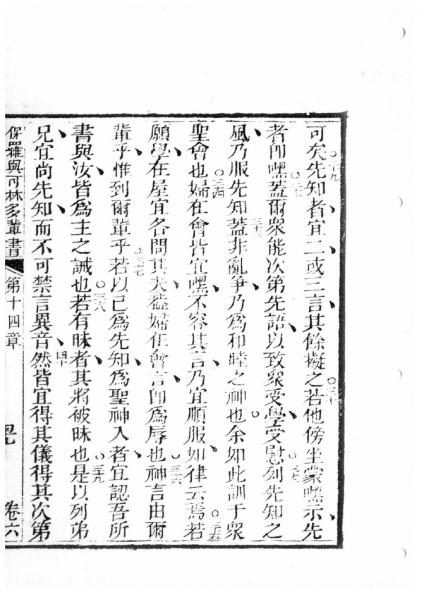 可矣先知者宜二或三言其餘擬之若他傍坐蒙嘿示先
者即嘿蓋爾衆能次第先語以致衆受學受慰列先知之
風乃服先知蓋非亂爭乃為和睦之神也余如此訓于衆
聖會也婦在會皆宜嘿不容其言乃宜順服如律云焉若
願學在屋宜各問其夫蓋婦在會言即為辱也神言由爾
輩乎惟到爾輩乎若以己為先知為聖神入者宜認吾所
書與汝皆為主之誡也若有昧者其將被昧也是以列弟
兄宜尚先知而不可禁言異音然皆宜得其儀得其次第
保羅與可林多輩書 第十四章 卷六